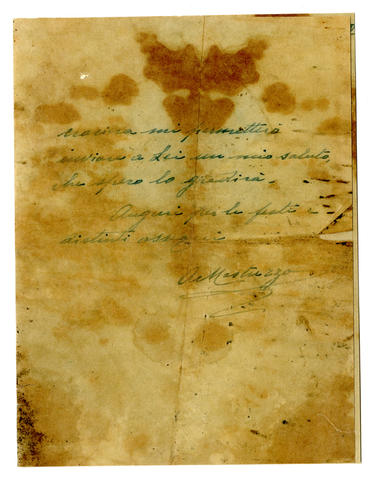 mi permetterò
inviare a Lei un mio saluto,
che spero lo gradirà.
Auguri per le feste e
distinti